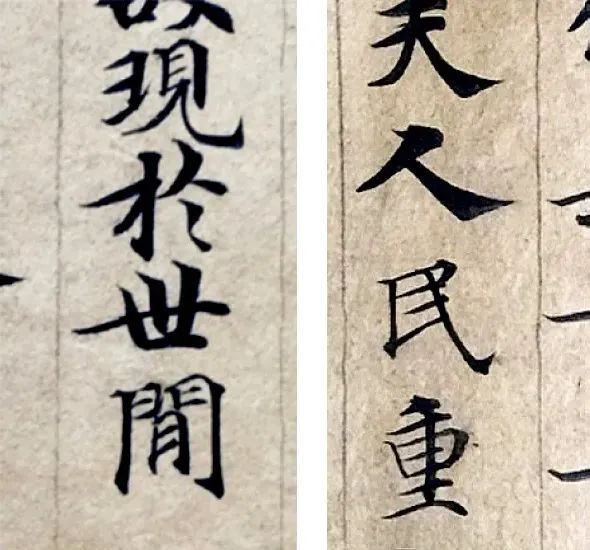 現於世閒
天人民重